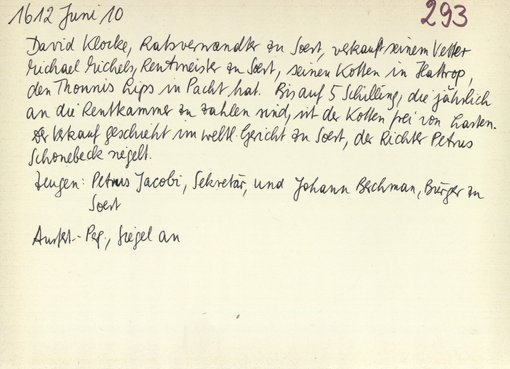 1612 Juni 10
293
David Klocke, Ratsverwandter zu Soest, verkauft seinem Vetter
Michael Michels, Rentmeister zu Soest, seinen Kotten in Hattrop,
den Thonnis Lips in Pacht hat. Bis auf 5 Schilling, die jährlich
an die Rentkammer zu zahlen sind, ist der Kotten frei von Lasten.
Der Verkauf geschieht im weltl. Gericht zu Soest, der Richter Petrus
Schonebeck siegelt.
Zeugen: Petrus Jacobi, Sekretär, und Johann Bechman, Bürger zu
Soest
Ausf.-Perg., Siegel an